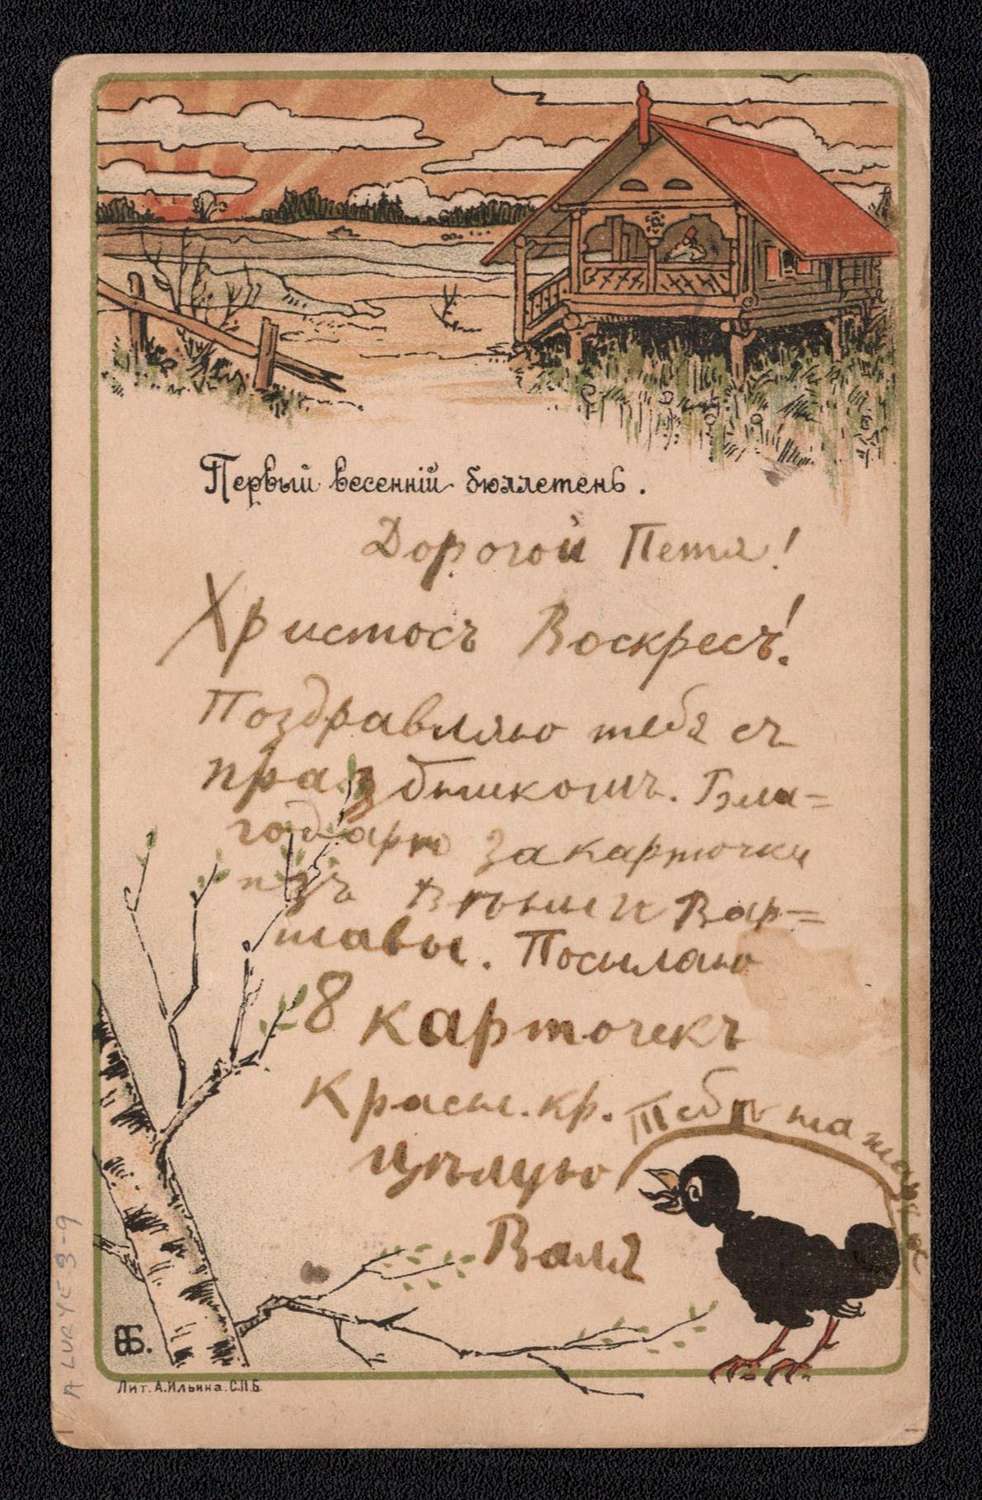 Первый весеннiй бюллетень.
Дорогой Петя!
Христосъ Воскресъ!
Поздравляю тебя съ
праздникомъ. Бла=
годарю за карточки
изъ Вѣны и Вар=
шавы. Посылаю
8 карточекъ
Красн. кр.
цѣлую
Валя
ѲБ.
Лит. А.Ильина. С.П.Б.
A LURYE 3-9